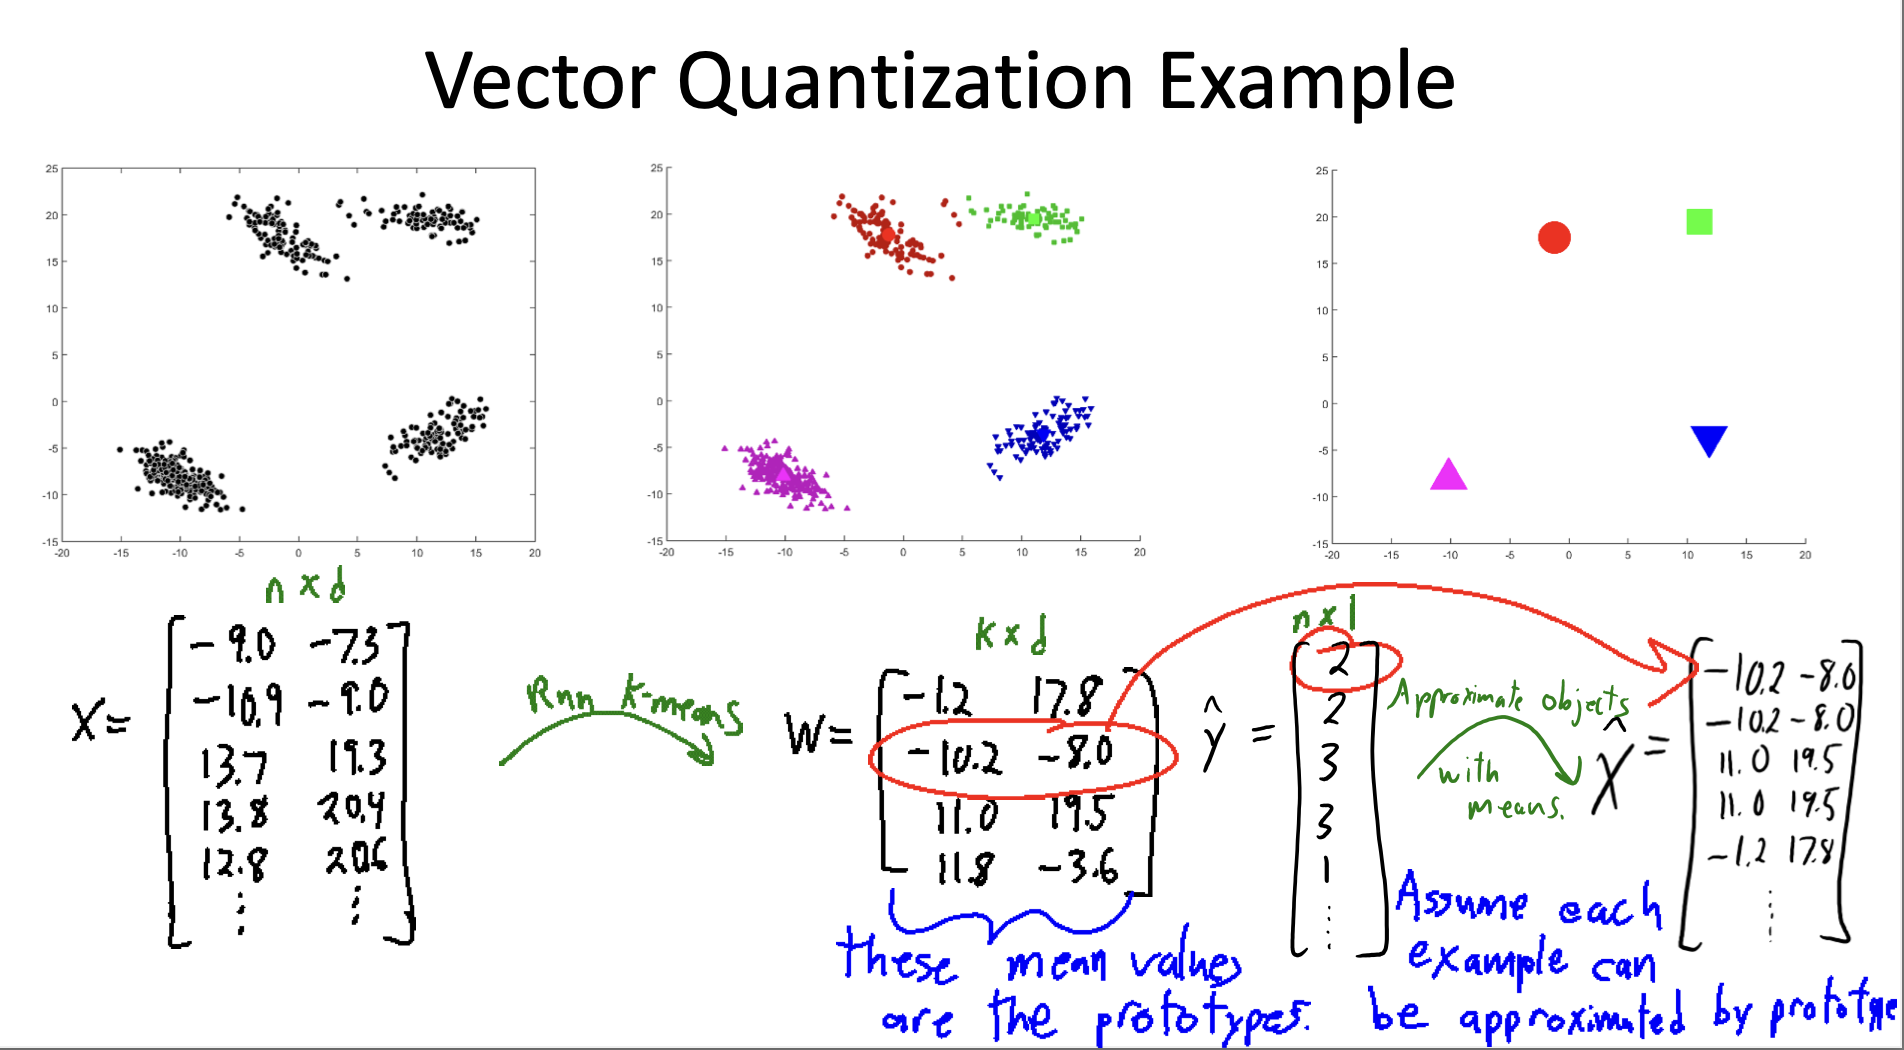 Vector Quantization Example
25
20
15
10
5
0
-5
-10
-15
-20 -15 -10 -5 0 5 10 15 20
25
20
15
10
5
0
-5
-10
-15
-20 -15 -10 -5 0 5 10 15 20
25
20
15
10
5
0
-5
-10
-15
-20 -15 -10 -5 0 5 10 15 20
n x d
X =
-9.0 -7.3
-10.9 -9.0
13.7 19.3
13.8 20.4
12.8 20.6
⋮ ⋮
Run K-means
k x d
W =
-1.2 17.8
-10.2 -8.0
11.0 19.5
11.8 -3.6
these mean values
are the prototypes.
n x 1
ŷ =
2
2
3
3
1
⋮
Approximate objects
with
means.
X̂ =
-10.2 -8.0
-10.2 -8.0
11.0 19.5
11.0 19.5
-1.2 17.8
⋮
Assume each
example can
be approximated by prototype